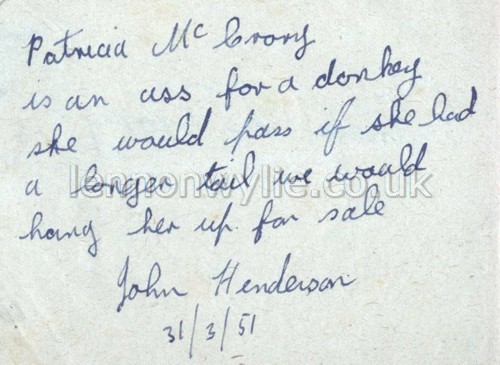 Patricia Mc Crory
is an ass for a donkey
she would pass if she had
a longer tail we would
lennonwylie.co.uk
hang her up. for sale
John Henderson
31/3/51